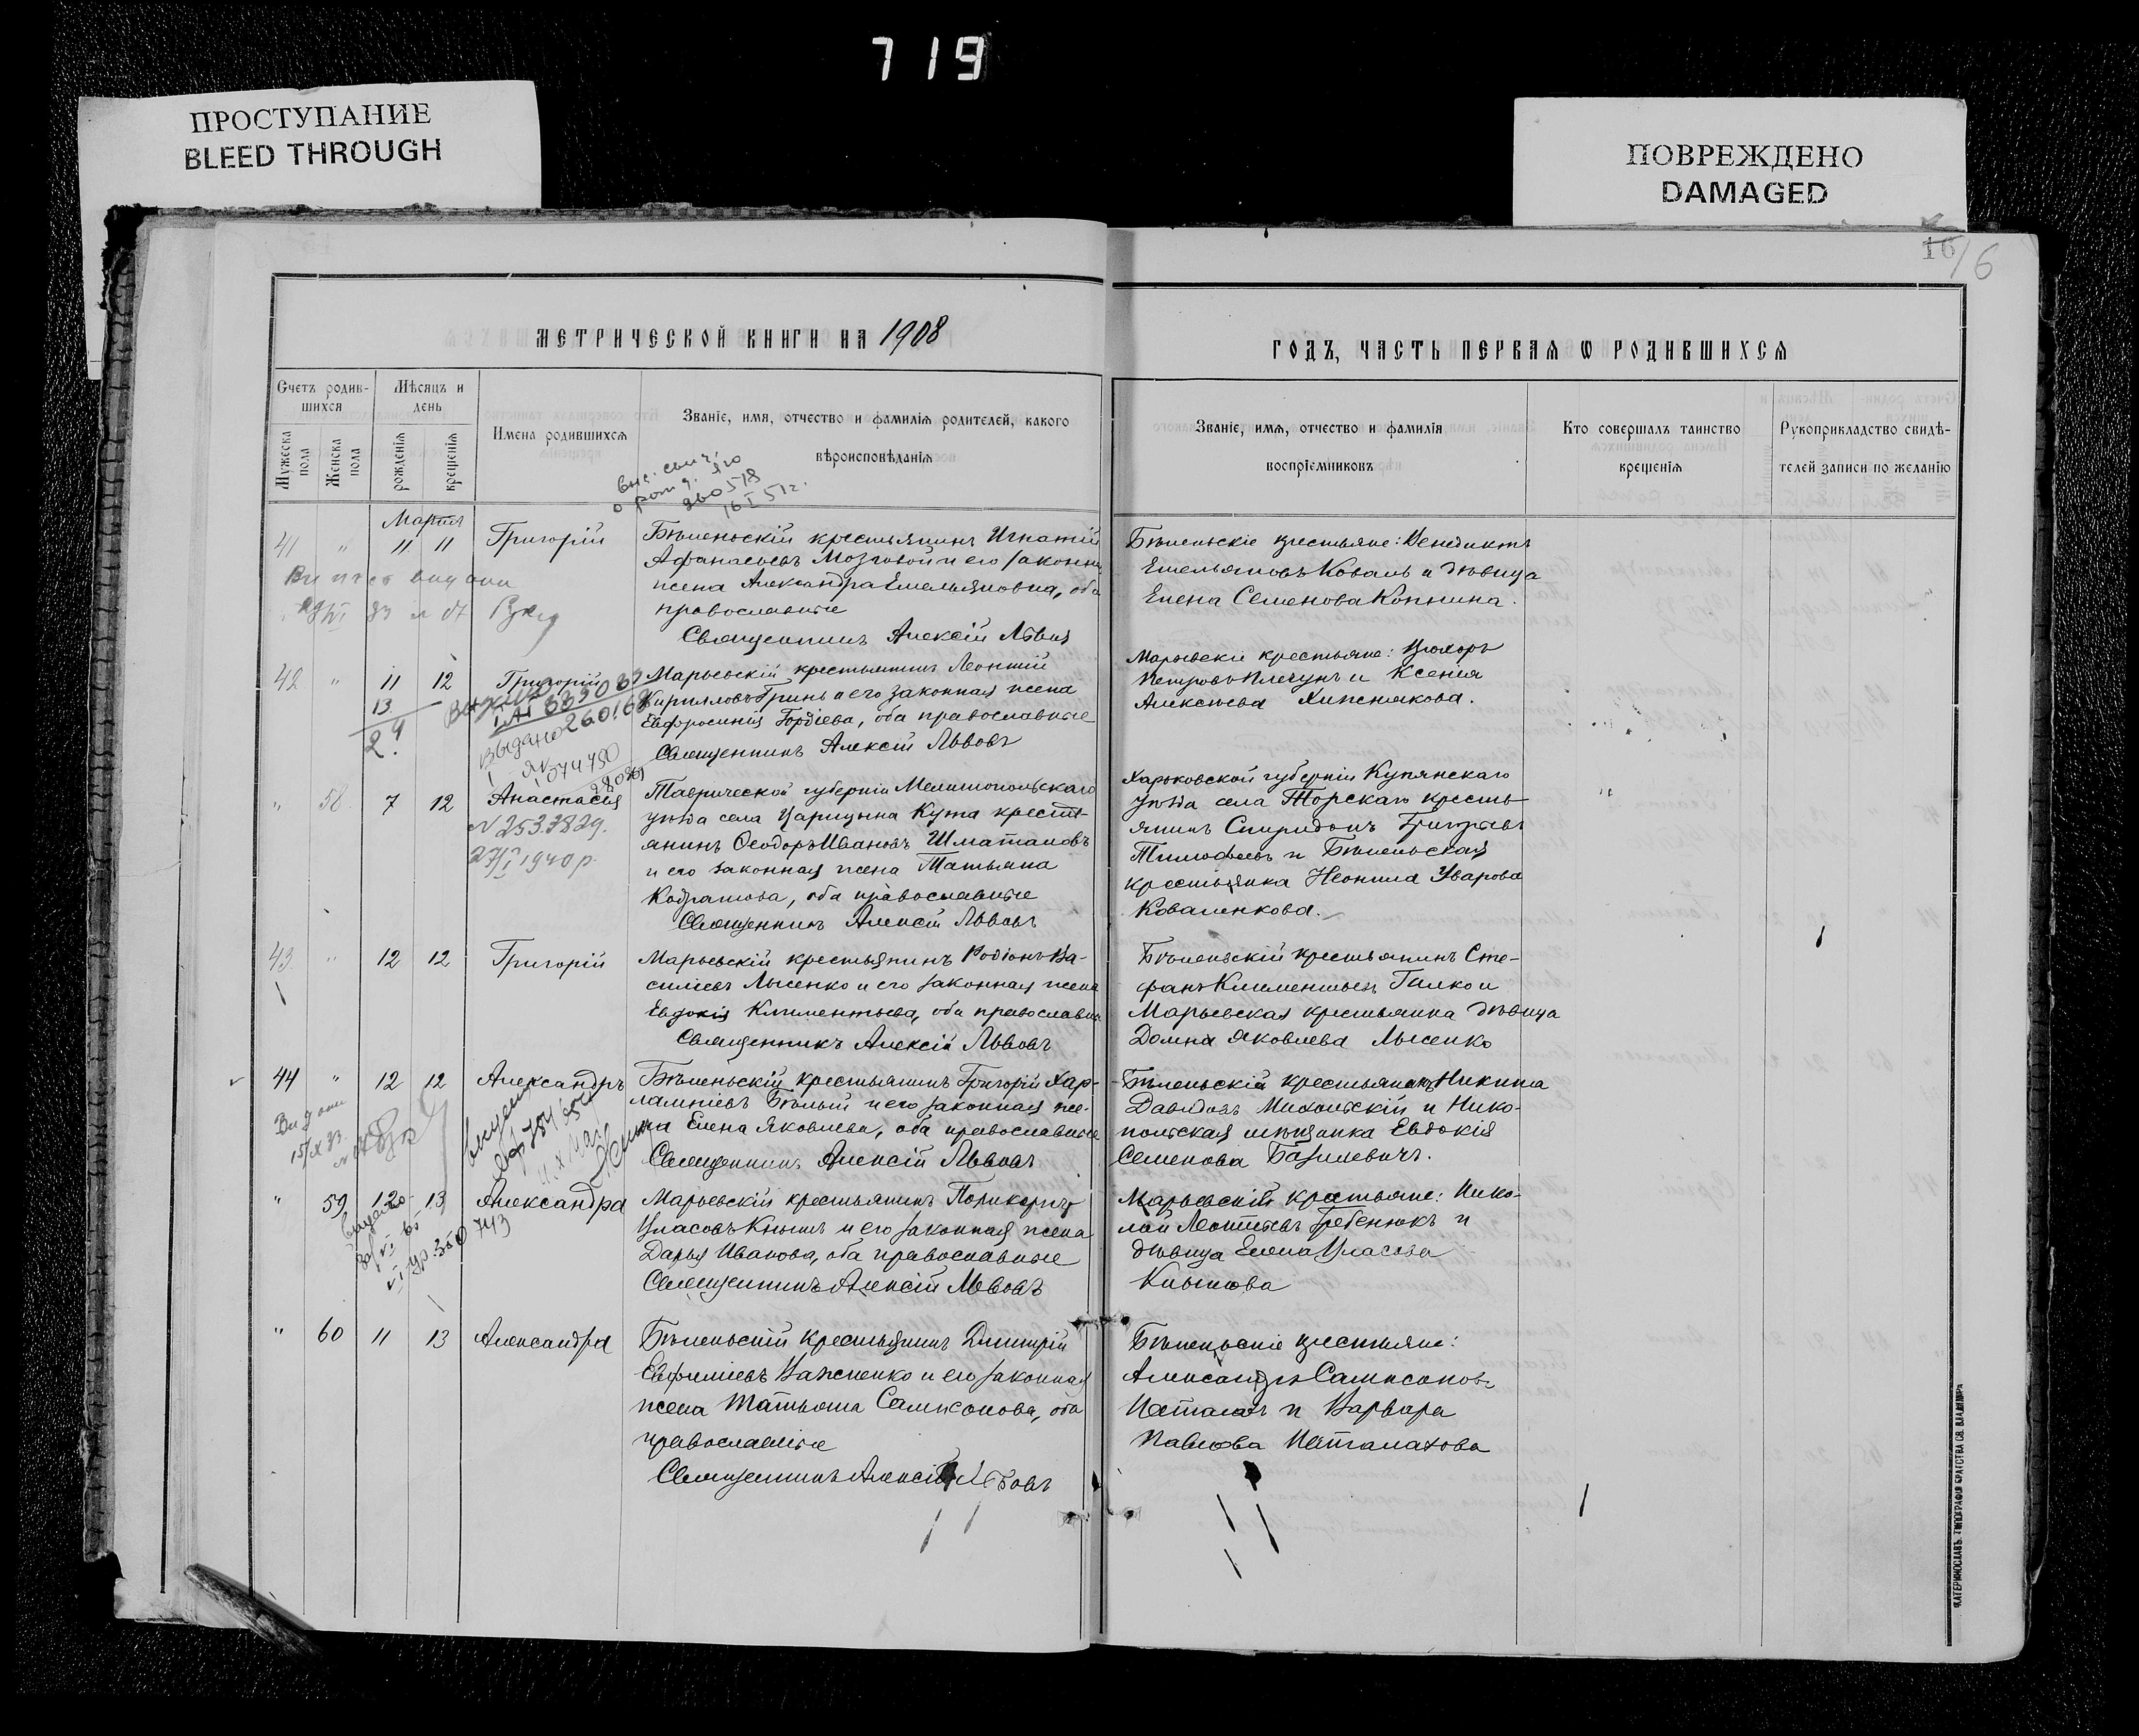 719
ПРОСТУПАНИЕ
BLEED THROUGH
ПОВРЕЖДЕНО
DAMAGED
16
16
МЕТРИЧЕСКОЙ КНИГИ НА 1908
ГОДЪ, ЧАСТЬ ПЕРВАЯ Ѡ РОДИВШИХСЯ
Счетъ родив-
шихся
Мужеска пола
Женска пола
Мѣсяцъ и
день
рожденія
крещенія
Имена родившихся
Званіе, имя, отчество и фамилія родителей, какого
вѣроисповѣданія
Званіе, имя, отчество и фамилія
воспріемниковъ
Кто совершалъ таинство
крещенія
Рукоприкладство свидѣ-
телей записи по желанію
260518
16 I 51 г.
Мартъ
41 " 11 11 Григорій
Бѣленьскій крестьянинъ Игнатій
Афанасьевъ Мозговой и его законн
жена Александра Емельяновна, оба
православные
Священникъ Алексій Львов
Бѣленьскіе крестьяне: Венедиктъ
Емельяновъ Коваль и дѣвица
Елена Семенова Копнина.
42 " 11 12 Григорій
13
24
Выдано 260168
074750
Марьевскій крестьянинъ Леонтій
Кирилловъ Гринь и его законная жена
Евфросинія Гордіева, оба православные
Священникъ Алексій Львовъ
Марьевскіе крестьяне: Ѳеодоръ
Петровъ Плечунъ и Ксенія
Алексѣева Хижнякова.
" 58 7 12 Анастасія
N 2533829.
27/I 1940 р.
Таврической губерніи Мелитопольскаго
уѣзда села Царицына Кута кресть-
янинъ Ѳеодоръ Ивановъ Шматановъ
и его законная жена Татьяна
Кодратова, оба православные
Священникъ Алексій Львовъ
Харьковской губерніи Купянскаго
уѣзда села Торскаго кресть-
янинъ Спиридонъ Григорьевъ
Тимофеевъ и Бѣленьская
крестьянка Неонила Уварова
Коваленкова.
43 " 12 12 Григорій
Марьевскій крестьянинъ Родіонъ Ва-
сильевъ Лысенко и его законная жена
Евдокія Климентьева, оба православн
Священникъ Алексій Львовъ
Бѣленьскій крестьянинъ Сте-
фанъ Климентьевъ Галко и
Марьевская крестьянка дѣвица
Домна Яковлева Лысенко
44 " 12 12 Александръ
Бѣленьскій крестьянинъ Григорій Хар-
лампіевъ Бѣлый и его законная же-
на Елена Яковлева, оба православные
Священникъ Алексій Львовъ
Бѣленьскій крестьянинъ Никита
Давидовъ Михольскій и Нико-
польская мѣщанка Евдокія
Семенова Базилевичъ.
" 59 12 13 Александра
350 743
Марьевскій крестьянинъ Поликарпъ
Уласовъ Кнышъ и его законная жена
Дарья Иванова, оба православные
Священникъ Алексій Львовъ
Марьевскіе крестьяне: Нико-
лай Леонтьевъ Гребенюкъ и
дѣвица Елена Уласова
Кнышова
" 60 11 13 Александра
Бѣленьскій крестьянинъ Димитрій
Евфиміевъ Важненко и его законная
жена Татьяна Самсонова, оба
православные
Священникъ Алексій Львовъ
Бѣленьскіе крестьяне:
Александръ Самсоновъ
Паталахъ и Варвара
Павлова Паталахова
ЕКАТЕРИНОСЛАВЪ. ТИПОГРАФІЯ БРАТСТВА СВ. ВЛАДИМІРА